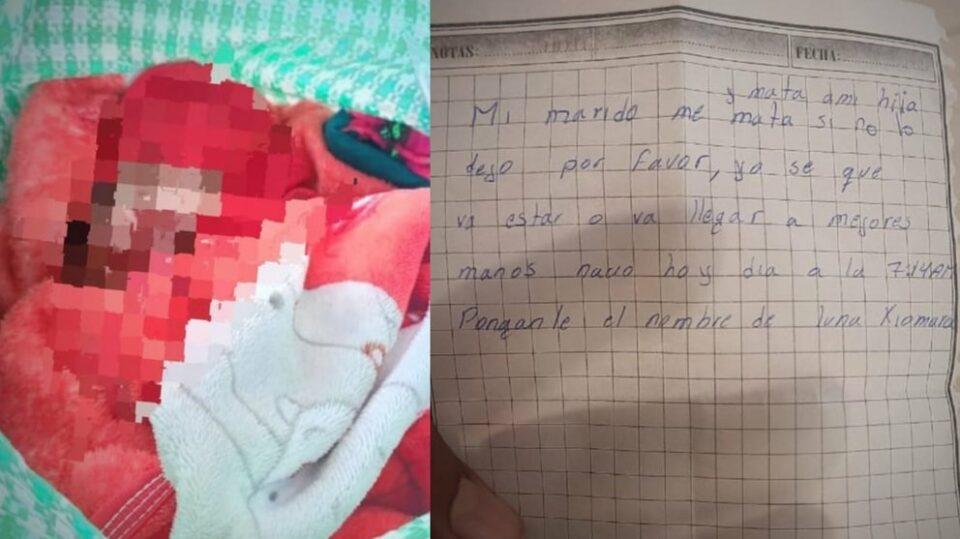 NOTAS:
FECHA:
y mata ami hija
Mi marido me mata si no lo
dejo por favor, ya se que
va estar o va llegar a mejores
manos nacio hoy dia a la 7:14AM
Ponganle el nombre de luna Xiomara